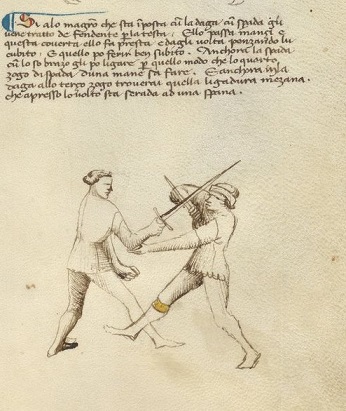 Si alo magro che sta in posta cum la daga cum spada gli
vene tratto de fendente per la testa. Ello passa inanci e
questa coverta ello fa presta e dagli volta penzando lu
cubito. E quello po ferir ben subito. Anchora la spada
cum lo so brazo gli po ligare per quello modo che lo quarto
zogo di spada d'una mane sa fare. E anchora in la
daga allo terço zogo troverai quella ligadura mezana.
che apresso lo volto sta serada ad una spana.